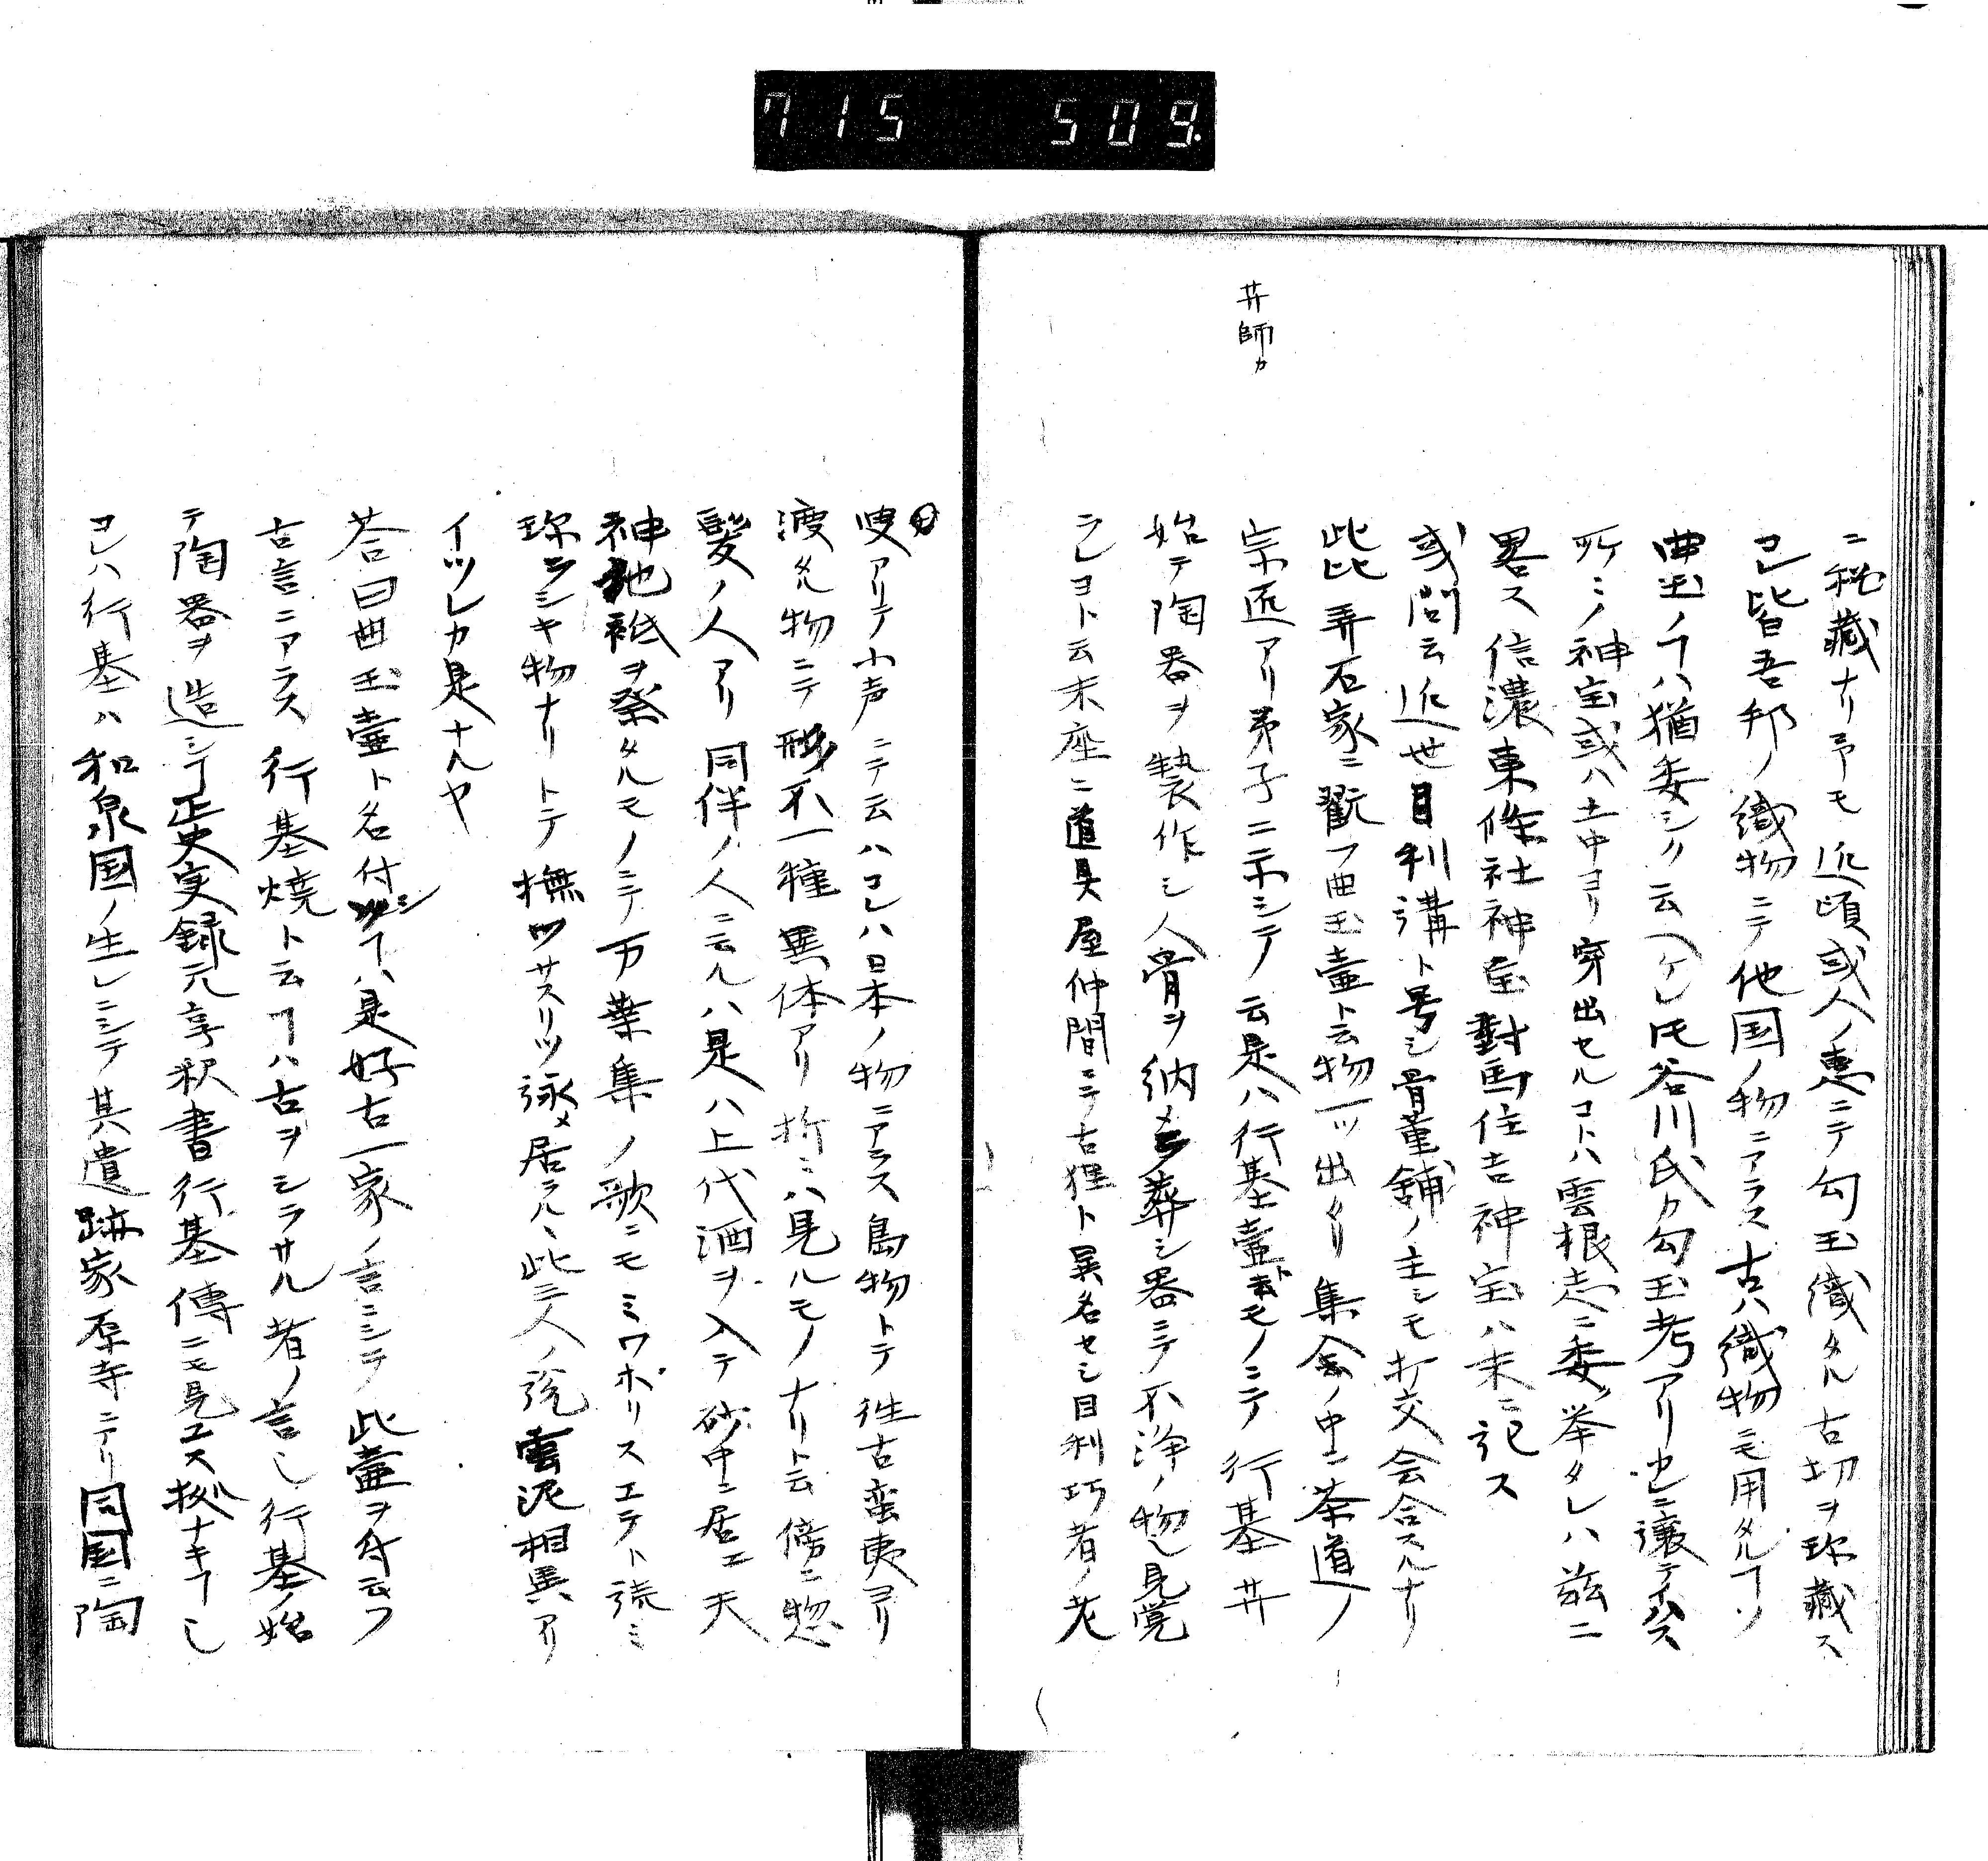 715 509.
ニ秘蔵ナリ予モ近頃或人ノ恵ニテ勾玉織タル古切ヲ珍蔵ス
コレ皆吾邦ノ織物ニテ他国ノ物ニアラス古ハ織物ニモ用タルヿソ
曲玉ノヿハ猶委シク云ヘケレ𪜈谷川氏カ勾玉考アリ也ニ譲テイハス
所ミノ神宝或ハ土中ヨリ穿出セルコトハ雲根志ニ委ク挙タレハ茲ニ
畧ス信濃東條社神宝對馬住吉神宝ハ末ニ記ス
或問云近世目利講ト号シ骨董舗ノ主シモ打交会合スルナリ
此比弄石家ニ翫フ曲玉壷ト云物一ツ出タリ集会ノ中ニ茶道ノ
宗匠アリ弟子ニ示シテ云是ハ行基壷ト云モノニテ行基井
井師カ
始テ陶器ヲ製作シ人骨ヲ納メ葬シ器ニテ不浄ノ物也見覚
ラレヨト云末座ニ道具屋仲間ニテ古狸ト異名セシ目利巧者ノ老
叟アリテ小声ニテ云ハコレハ日本ノ物ニアラス島物トテ往古蛮夷ヨリ
渡タル物ニテ形不一種異体アリ折ニハ見ルモノナリト云傍ニ惣
髪ノ人アリ同伴ノ人ニ云ルハ是ハ上代酒ヲ入テ砂中ニ居エ天
神地祇ヲ祭タルモノニテ万葉集ノ歌ニモミワボリスエテト読ミ
珍ラシキ物ナリトテ撫ツサスリツ詠メ居ラル、此三人ノ説雲泥相異アリ
イツレカ是ナルヤ
荅曰曲玉壷ト名付シヿハ是好古一家ノ言ニシテ此壷ヲ分云フ
古言ニアラス行基焼ト云ヿハ古ヲシラサル者ノ言也行基ノ始
テ陶器ヲ造シヿ正史実録元享釈書行基傳ニモ見エス拠ナキヿ也
コレハ行基ハ和泉国ノ生レニシテ其遺跡家原寺ニテリ同国ニ陶